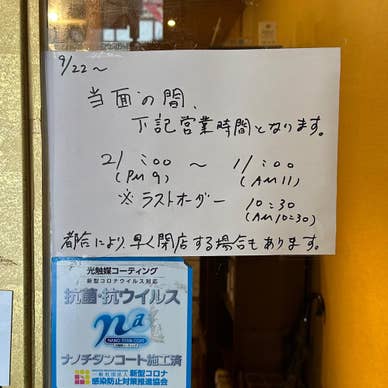 9/22〜
当面の間、
下記営業時間となります。
21:00 〜 11:00
(PM9) (AM11)
※ラストオーダー 10:30
(AM10:30)
都合により、早く閉店する場合もあります。
光触媒コーティング
新型コロナウイルス対応
抗菌・抗ウイルス
na
NANO TITAN COAT
ナノチタンコート施工済
一般社団法人 新型コロナ
感染防止対策推進協会